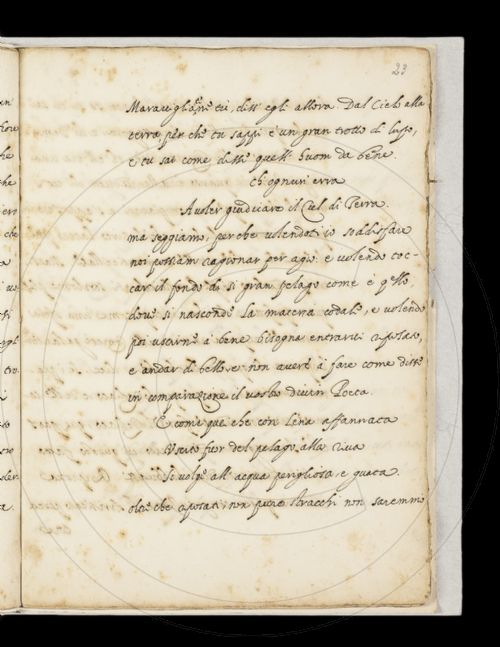 23
Marauigliomi tù, diss' egli allora. Dal Cielo alla
terra per che tu sappi è un gran trotto di lupo,
e tu sai come disse quell' huom da bene.
Ch' ognun' erra
A voler giudicare il Ciel di Terra.
ma seggiamo, perche volendoti io soddisfare
noi possiam ragionar per agio: e volendo toc-
car il fondo di sì gran pelago come è
doue si nasconde la materia e volendo
poi uscirne à bene bisogna entrarui
e andar di bello, e non auere à fare come disse
in comparazione il vostro diuin Poeta.
E come quei che con lena affannata
Uscito fuor del pelago alla riua
Si volge all' acqua perigliosa e guata.
oltre che posati, non pure stracchi non saremmo